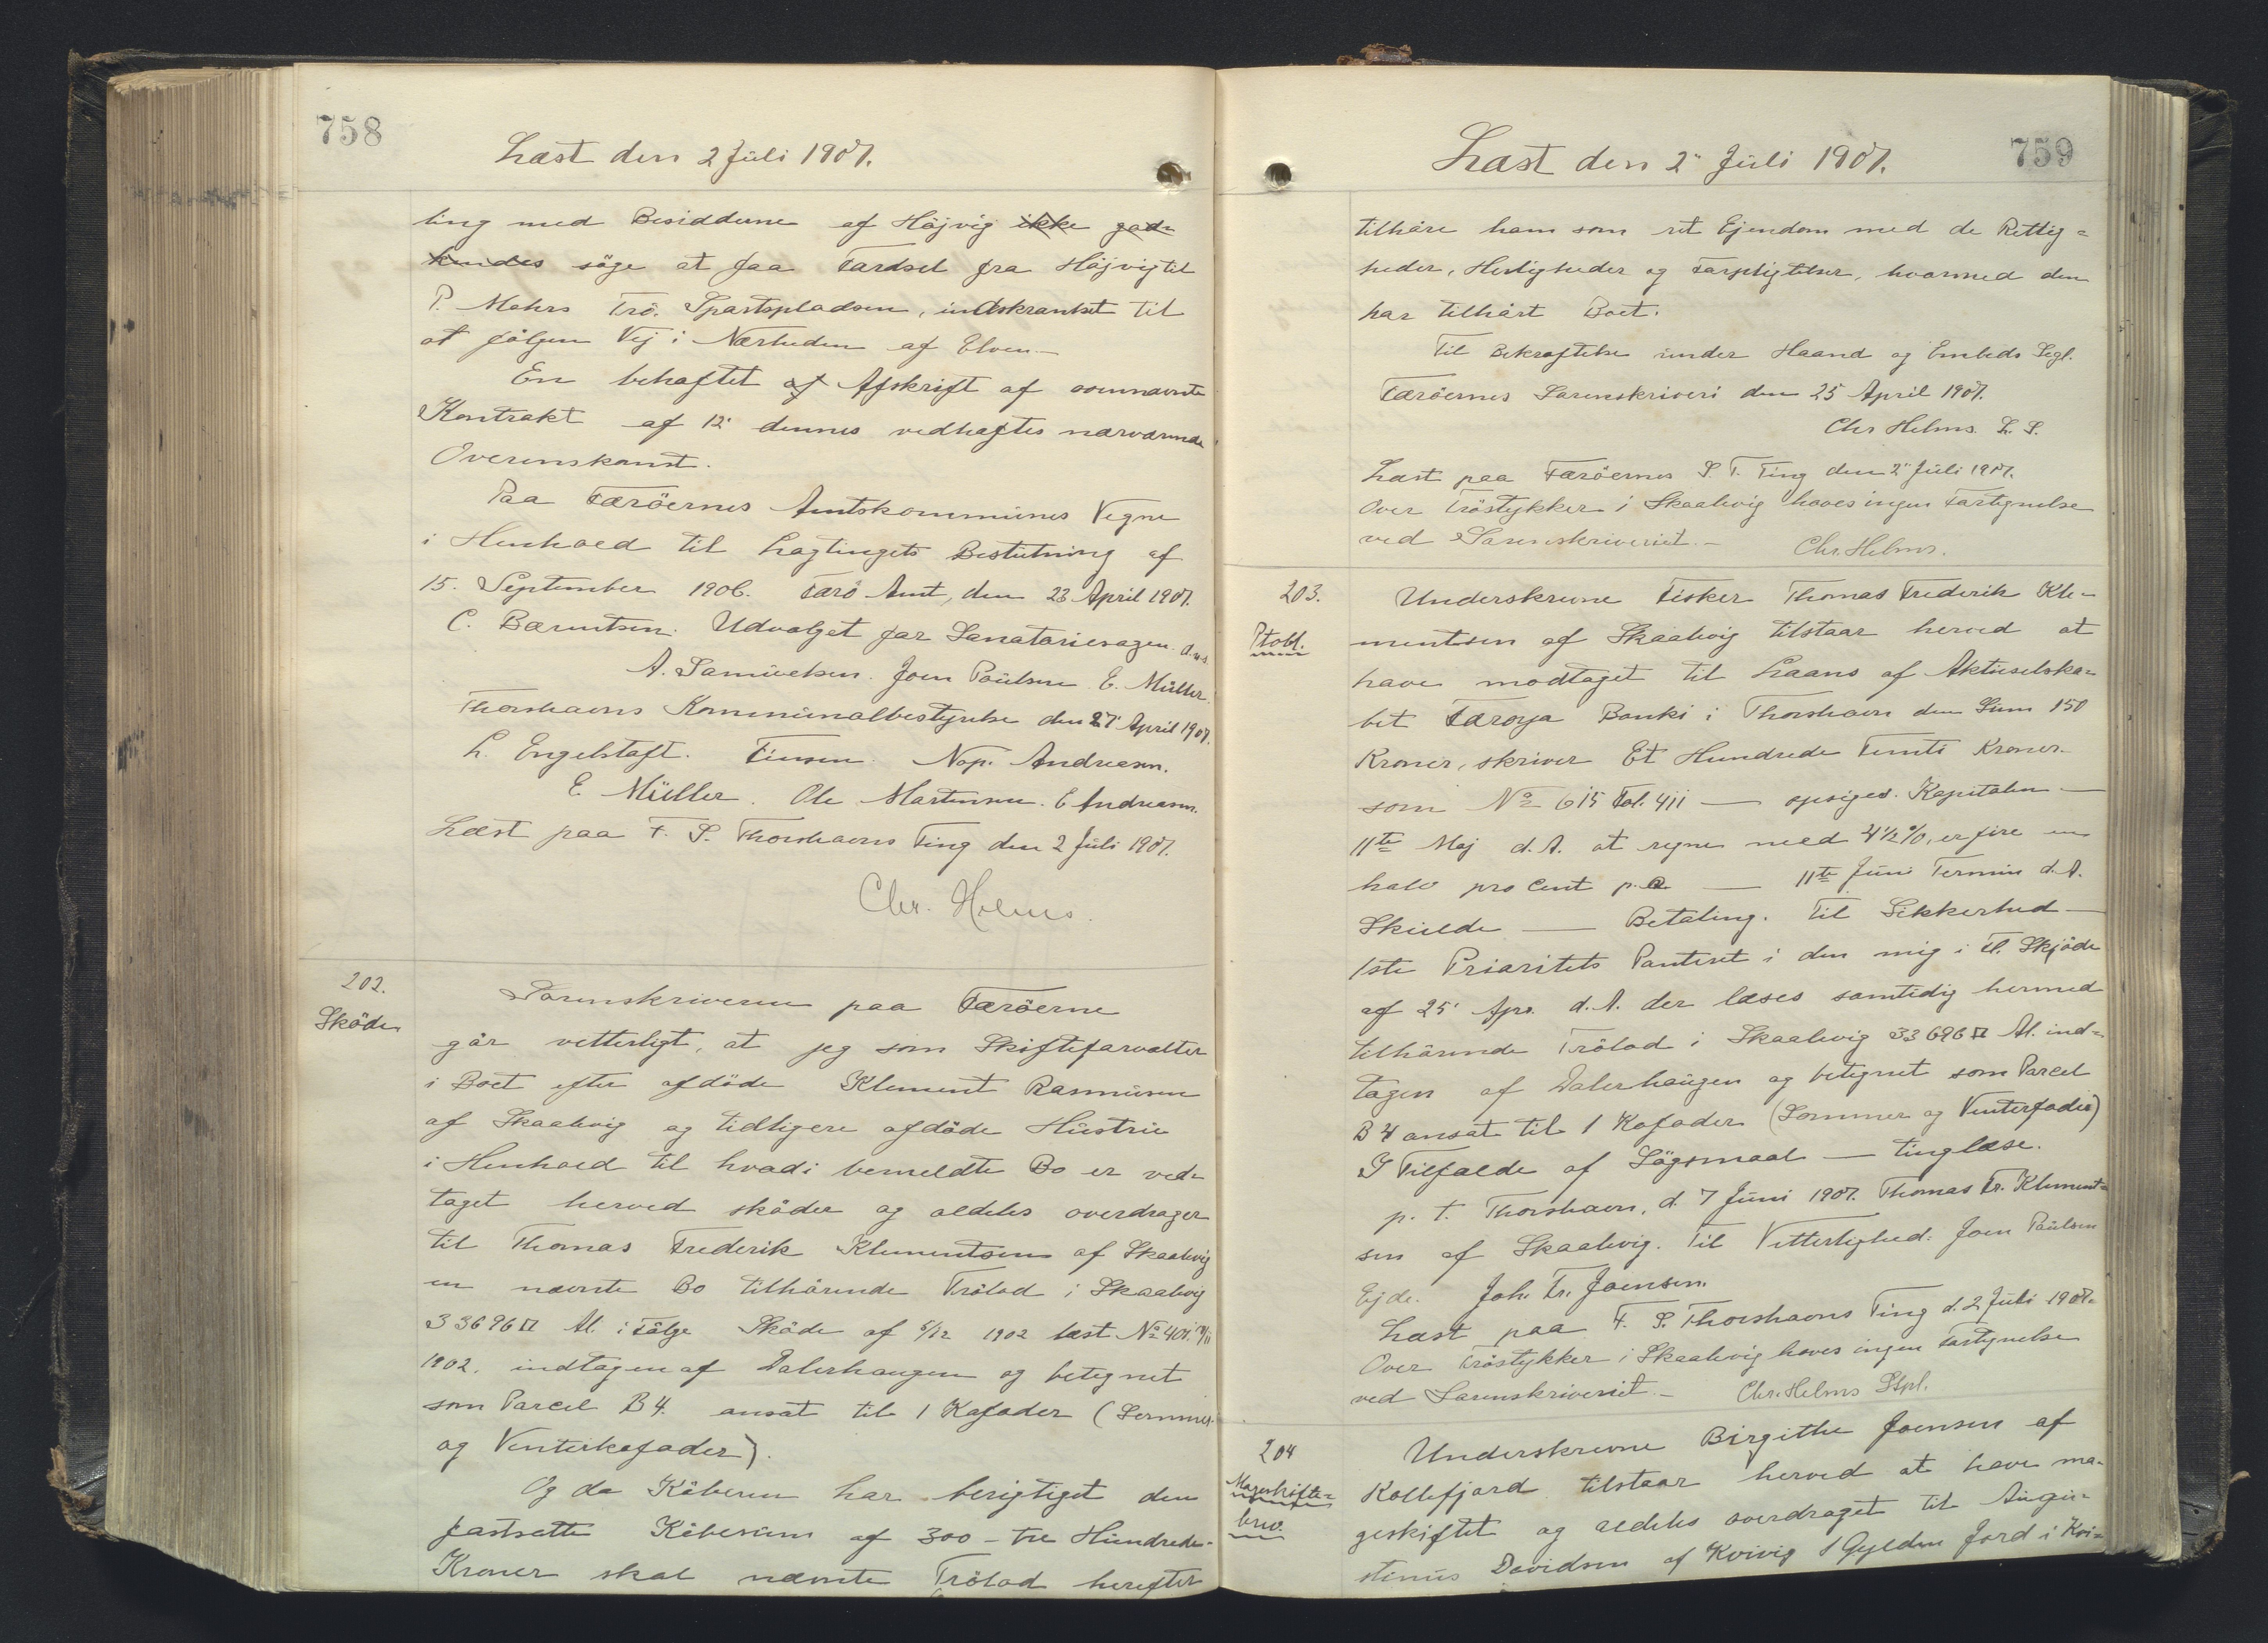 758
Læst den 2 Juli 1907.
ling med Besidderne af Højvig ikke god-
kendes søge at faa Færdsel fra Højvig til
P. Mohrs Trö. Sportspladsen, indskrænket til
at følgen Vej i Nærheden af Elven.—
En behæftet af Afskrift af ovennævnte
Kontrakt af 12' dennes vedhæftes nærværende
Overenskomst.
Paa Færöernes Amtskommunes Vegne
i Henhold til Lagtingets Beslutning af
15. September 1906. Færö Amt, den 23 April 1907.
C. Bærentsen. Udvalget for Sanatoriesagen d.u.s.
A. Samuelsen. Joen Poulsen E. Müller.
Thorshavns Kommunalbestyrelse den 27' April 1907.
L. Engelstoft. Finsen. Nap. Andreasen.
E. Müller. Ole Martensen. E Andreasen.
Læst paa F. S. Thorshavns Ting den 2 Juli 1907.
Chr. Helms.
202.
Sköde
Sorenskriveren paa Færöerne
gör vetterligt, at jeg som Skifteforvalter
i Boet efter afdöde Klement Rasmussen
af Skaalevig og tidligere afdöde Hustru
i Henhold til hvad i bemeldte Bo er ved-
taget herved sköder og aldeles overdrager
til Thomas Frederik Klementsen af Skaalevig
en nævnte Bo tilhörende Trölod i Skaalevig
33696□ Al. i Fölge Sköde af 5/12 1902 læst No 401.
1902. indtagen af Dalerhaugen og betegnet
som Parcel B 4. ansat til 1 Kofoder (Sommer
og Venterkofoder).
Og da Köberen har berigtiget den
fastsatte Köbesum af 300 - tre Hundrede-
Kroner skal nævnte Trölod herefter
759
Læst den 2' Juli 1907.
tilhöre ham som ret Ejendom med de Rettig=
heder, Herligheder og Forpligtelser, hvormed den
har tilhört Boet.
Til Bekræftelse under Haand og Embeds Segl.
Færöernes Sorenskriveri den 25 April 1907.
Chr Helms. L. S.
Læst paa Færöernes S. T. Ting den 2' Juli 1907.
Over Tröstykker i Skaalevig haves ingen Fortegnelse
ved Sorenskriveriet.— Chr. Helms.
203.
Ptobl.
Underskrevne Fisker Thomas Frederik Kle-
mentsen af Skaalevig tilstaar herved at
have modtaget til Laans af Aktieselska-
bet Føroya Banki i Thorshavn den Sum 150
Kroner, skriver Et Hundrede Femti Kroner.
som No 615 Fol. 411 — opsiges. Kapitalen —
11te Maj d. A. at regne med 4½ %, er fire en
halv pro Cent p. a — 11te Juni Termin d. A.
Skulde — Betaling. Til Sikkerhed —
1ste Prioritets Panteret i den mig i Fl. Skjöde
af 25' Apr. d. A. der læses samtidig hermed
tilhörende Trölod i Skaalevig 33696□ Al. ind=
tagen af Dalerhaugen og betegnet som Parcel
B 4 ansat til 1 Kofoder (Sommer og Venterfoder)
I Tilfælde af Sögsmaal — tinglæse.
p. t. Thorshavn, d. 7 Juni 1907. Thomas Fr. Klement=
sen af Skaalevig. Til Vetterlighed: Joen Poulsen
Ejde. Joh. Fr. Joensen.
Læst paa F. S. Thorshavns Ting d. 2 Juli 1907.
Over Tröstykker i Skaalevig haves ingen Fortegnelse
ved Sorenskriveriet.— Chr. Helms Sspl.
204
Mageskifte=
brev.
Underskrevne Birgithe Joensen af
Kollefjord tilstaar herved at have ma-
geskiftet og aldeles overdraget til Augu-
stinus Davidsen af Kvivig 1 Gylden Jord i Kvi=